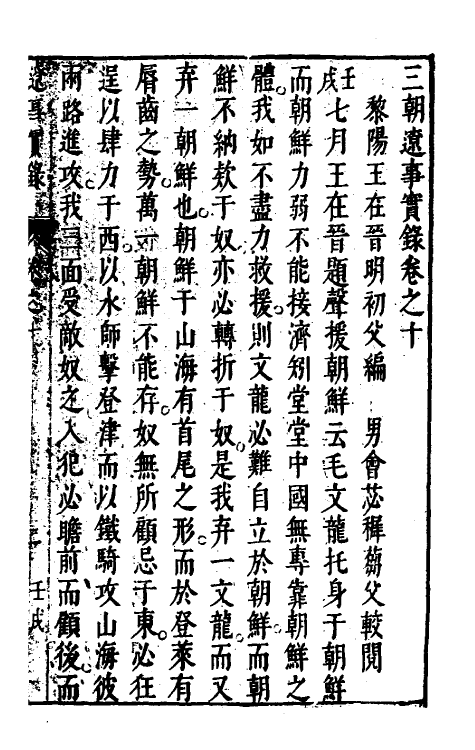 三朝遼事實錄卷之十
黎陽王在晉明初父編 男會苾穉蒭父較閱
壬戌七月王在晉題聲援朝鮮云毛文龍托身于朝鮮
而朝鮮力弱不能接濟矧堂堂中國無專靠朝鮮之
體我如不盡力救援則文龍必難自立於朝鮮而朝
鮮不納款于奴亦必轉折于奴是我弃一文龍而又
弃一朝鮮也朝鮮于山海有首尾之形而於登萊有
唇齒之勢萬一朝鮮不能存奴無所顧忌于東必狂
逞以肆力于西以水師擊登津而以鐵騎攻山海彼
兩路進攻我三面受敵奴之入犯必瞻前而顧後而
事實錄
壬戌